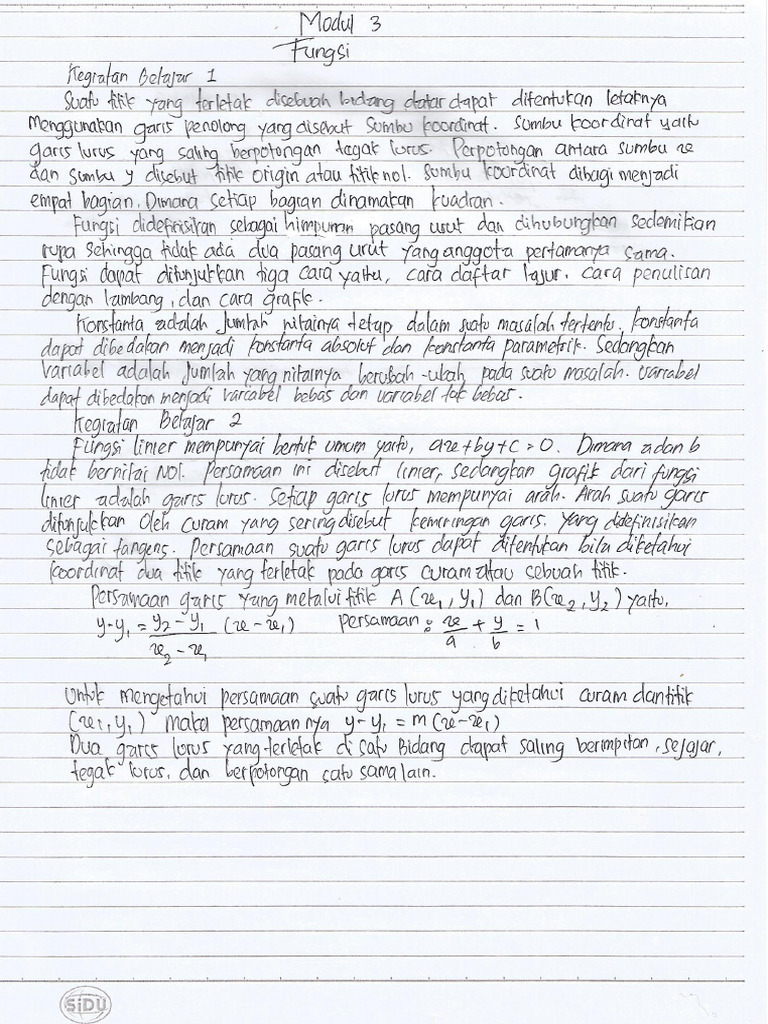 Modul 3
Fungsi
Kegiatan Belajar 1
Suatu titik yang terletak disebuah bidang datar dapat ditentukan letaknya
Menggunakan garis penolong yang disebut Sumbu Koordinat. Sumbu Koordinat yaitu
garis lurus yang saling berpotongan tegak lurus. Perpotongan antara sumbu x
dan Sumbu y disebut titik origin atau titik nol. Sumbu Koordinat dibagi menjadi
empat bagian. Dimana Setiap bagian dinamakan Kuadran.
Fungsi didefinisikan sebagai himpunan pasang urut dan dihubungkan sedemikian
rupa sehingga tidak ada dua pasang urut yang anggota pertamanya sama.
Fungsi dapat ditunjukkan tiga cara yaitu, cara daftar lajur, cara penulisan
dengan lambang, dan cara grafik.
Konstanta adalah Jumlah nilainya tetap dalam suatu masalah tertentu. Konstanta
dapat dibedakan menjadi Konstanta absolut dan Konstanta parametrik. Sedangkan
variabel adalah Jumlah yang nilainya berubah-ubah pada suatu masalah. variabel
dapat dibedakan menjadi variabel bebas dan variabel tak bebas.
Kegiatan Belajar 2
Fungsi linier mempunyai bentuk umum yaitu, ax + by + c = 0. Dimana a dan b
tidak bernilai Nol. Persamaan ini disebut linier, Sedangkan grafik dari fungsi
linier adalah garis lurus. Setiap garis lurus mempunyai arah. Arah suatu garis
ditunjukkan oleh curam yang sering disebut kemiringan garis. Yang didefinisikan
sebagai tangens. Persamaan suatu garis lurus dapat ditentukan bila diketahui
koordinat dua titik yang terletak pada garis curam atau sebuah titik.
Persamaan garis yang melalui titik A (x₁, y₁) dan B(x₂, y₂) yaitu,
y-y₁ = y₂-y₁/x₂-x₁ (x-x₁) Persamaan: x/a + y/b = 1
Untuk mengetahui persamaan suatu garis lurus yang diketahui curam dan titik
(x₁, y₁) Maka persamaannya y-y₁ = m (x-x₁)
Dua garis lurus yang terletak di satu Bidang dapat saling berimpitan, sejajar,
tegak lurus, dan berpotongan satu sama lain.
SiDU